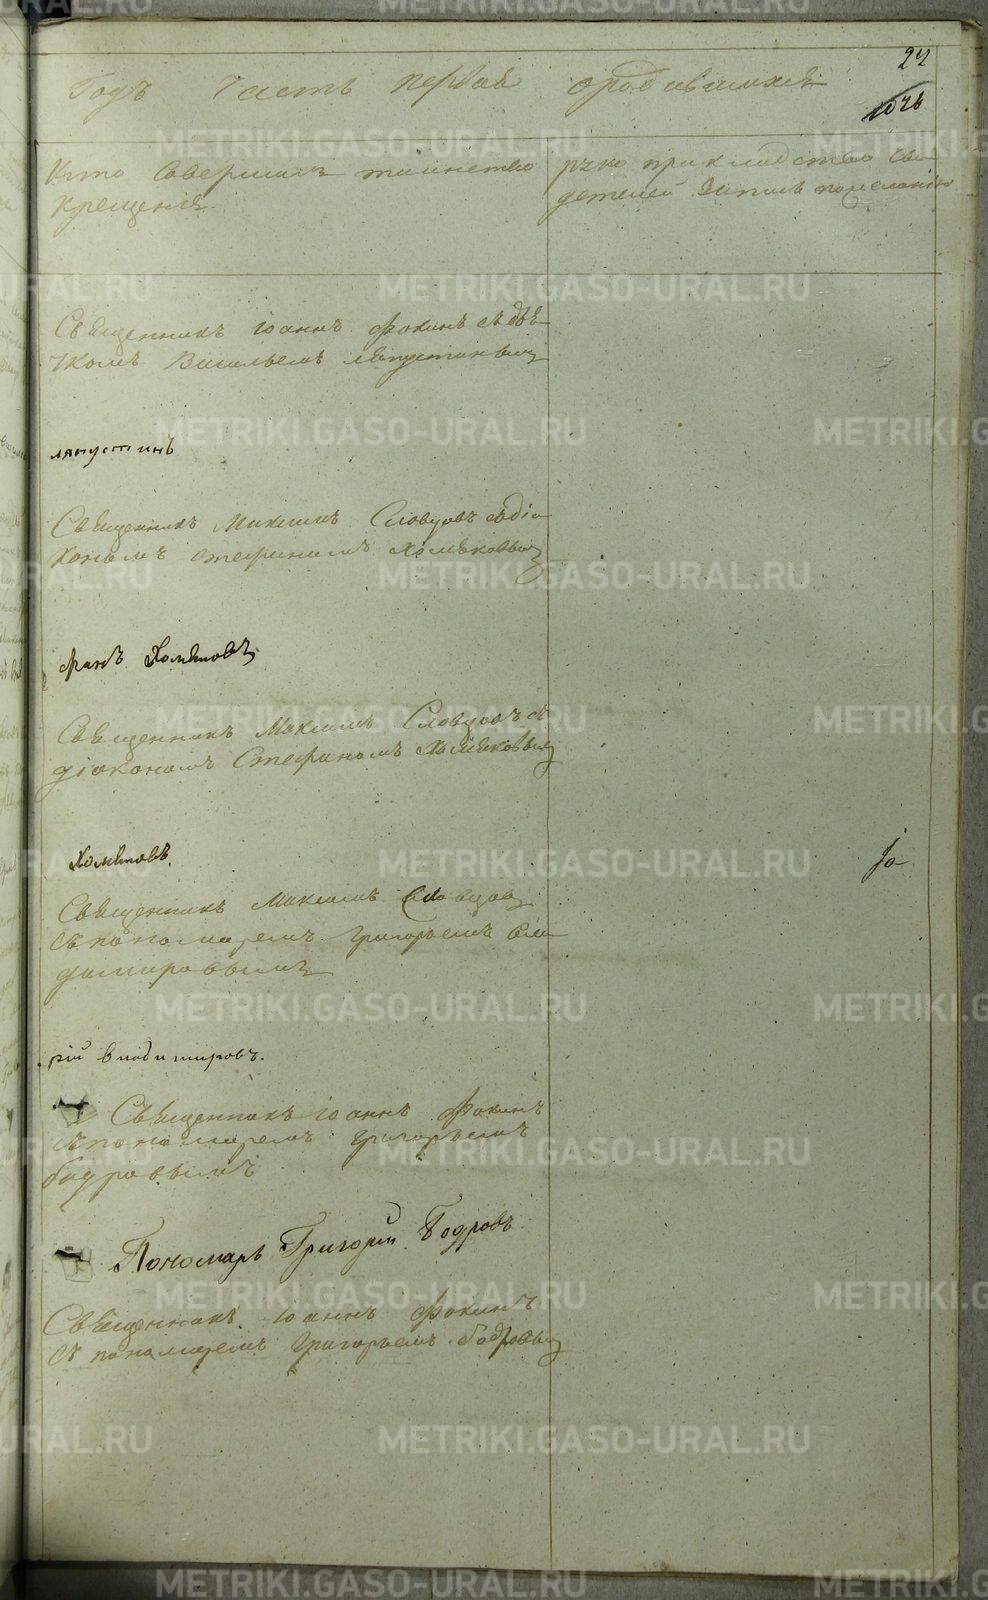 24
Годъ Часть первая о родившихся
Кто совершалъ таинство
крещенія.
рукоприкладство сви
детелей записи по желанію
Священникъ Іоаннъ Фокинъ съ дья
чкомъ Васильемъ Ляпустинымъ
ляпустинъ
Священникъ Максимъ Словцовъ съ діа
кономъ Стефаномъ Хомяковымъ
фанъ Хомяковъ
Священникъ Максимъ Словцовъ съ
діакономъ Стефаномъ Хомяковымъ
Хомяковъ.
Іо
Священникъ Максимъ Словцовъ
съ пономаремъ Григорьемъ Вла
димировымъ
рій владимировъ.
Священникъ Іоаннъ Фокинъ
съ пономаремъ Григорьемъ
Бодровымъ
Пономарь Григорій Бодровъ
Священникъ Іоаннъ Фокинъ
съ пономаремъ Григорьемъ Бодровым
METRIKI.GASO-URAL.RU